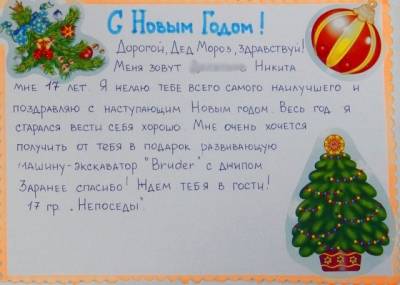 С Новым Годом!
Дорогой, Дед Мороз, здравствуй!
Меня зовут Никита
мне 17 лет. Я желаю тебе всего самого наилучшего и
поздравляю с наступающим Новым годом. Весь год я
старался вести себя хорошо. Мне очень хочется
получить от тебя в подарок развивающую
машину-экскаватор "Bruder" с джипом
Заранее спасибо! Ждем тебя в гости!
17 гр. „Непоседы"